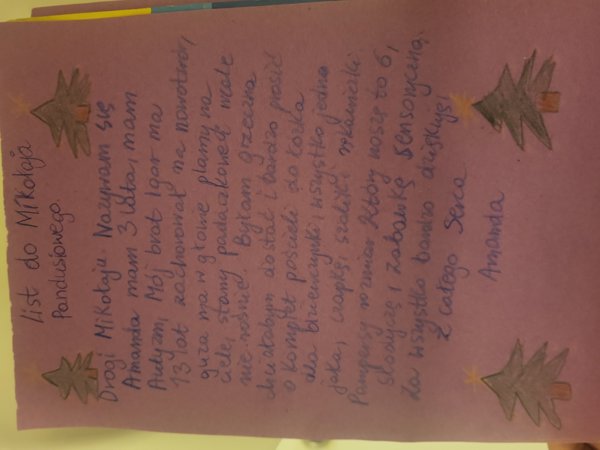 list do Mikołaja
Pandusiowego.
Drogi Mikołaju. Nazywam się
Amanda mam 3 lata, mam
Autyzm, Mój brat Igor ma
13 lat zachorował na nowotwór,
guza ma w głowe plamy na
ciele, stany padaczkowe wcale
nie rośnie. Byłam grzeczna
chciałabym dostać i bardzo prosić
o komplet pościeli do łóżka
dla dziewczynki, wszystko jedno
jaka, czapkę, szalik i rękawiczki.
Pampersy rozmiar który noszę to 6,
słodyczę i zabawkę sensoryczną.
Za wszystko bardzo dziękuję!
Z całego Serca
Amanda